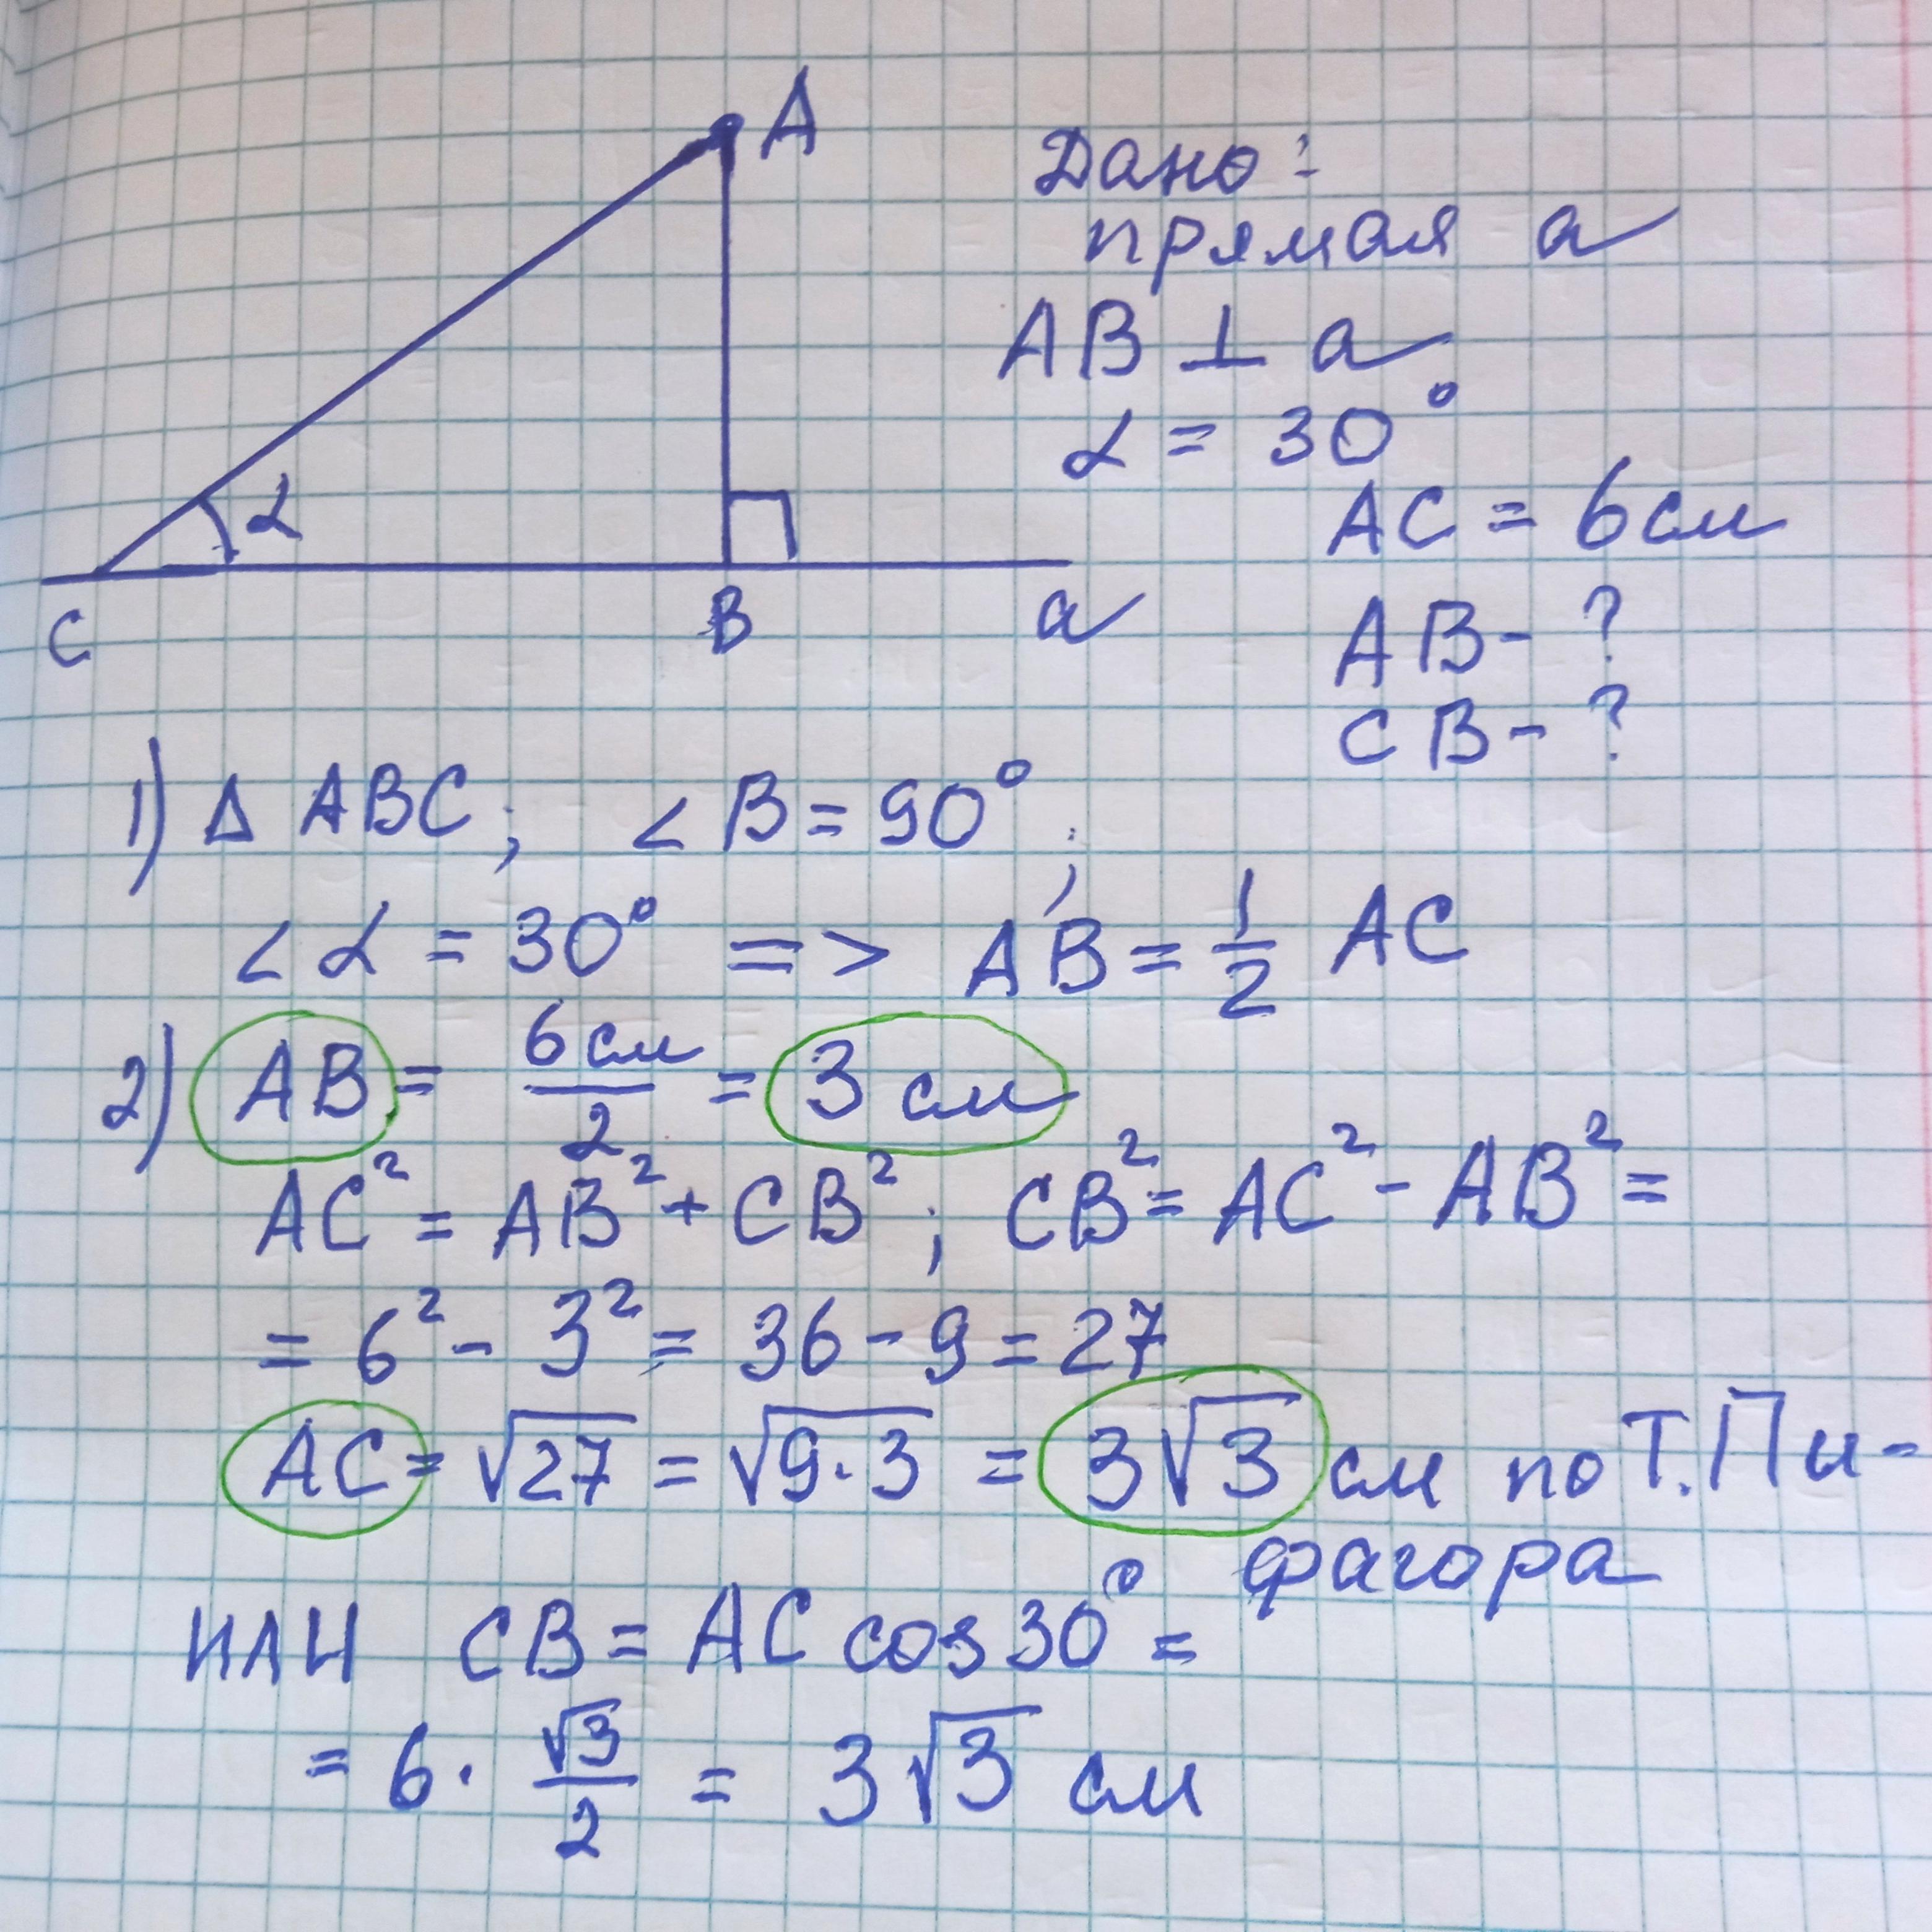 A
α
C
B
a
Дано:
прямая a
AB ⊥ a
α = 30°
AC = 6 см
AB - ?
CB - ?
1) Δ ABC; ∠ B = 90°;
∠ α = 30° => AB = 1/2 AC
2) AB = 6 см/2 = 3 см
AC² = AB² + CB²; CB² = AC² - AB² =
= 6² - 3² = 36 - 9 = 27
AC = √27 = √9·3 = 3√3 см по Т.Пи-
фагора
ИЛИ CB = AC cos 30° =
= 6 · √3/2 = 3√3 см